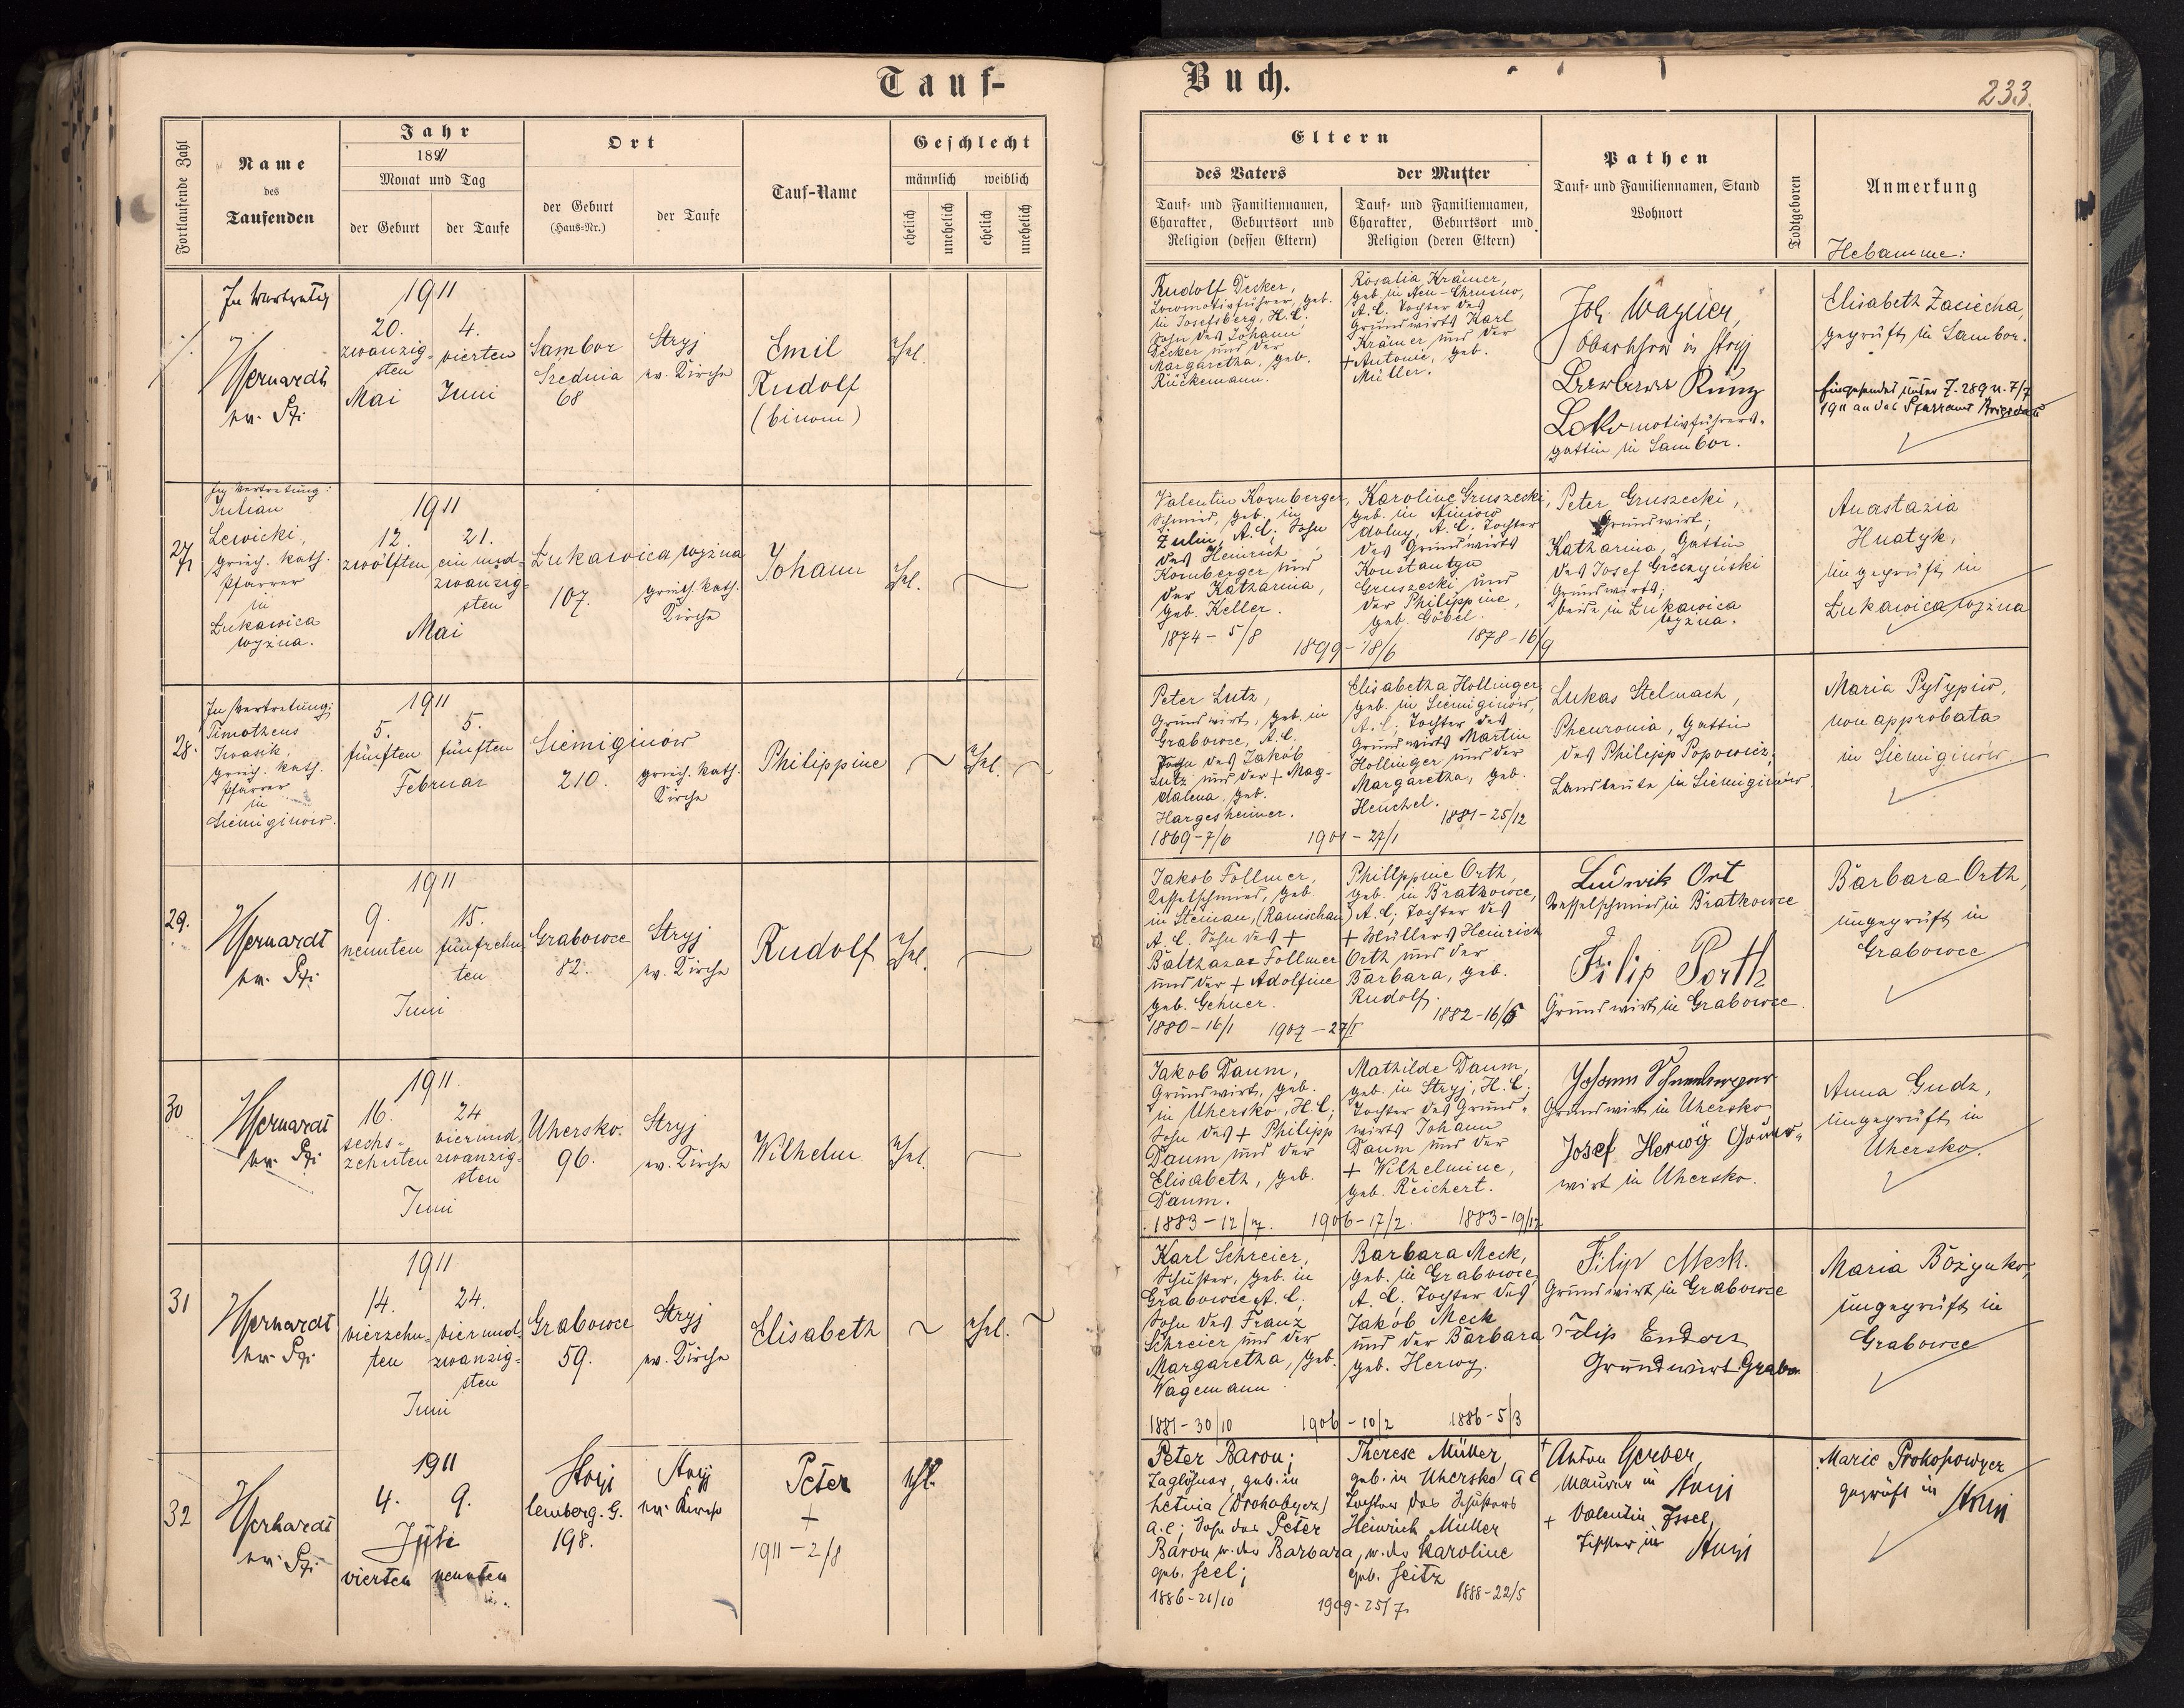 Tauf-
Buch.
233.
Fortlaufende Zahl
Name
des
Taufenden
Jahr
1891
Monat und Tag
der Geburt
der Taufe
Ort
der Geburt
(Haus-Nr.)
der Taufe
Tauf-Name
Geschlecht
männlich
weiblich
ehelich
unehelich
ehelich
unehelich
Eltern
des Vaters
Tauf- und Familiennamen,
Charakter, Geburtsort und
Religion (dessen Eltern)
der Mutter
Tauf- und Familiennamen,
Charakter, Geburtsort und
Religion (deren Eltern)
Pathen
Tauf- und Familiennamen, Stand
Wohnort
Todtgeboren
Anmerkung
Hebamme:
In Vertretung
ev. Pfr.
1911
20.
zwanzig-
sten
Mai
4.
vierten
Juni
Sambor
Srednia
68
Stryj
ev. Kirche
Emil
Rudolf
(binom)
ehel.
Rudolf Decker,
Locomotivführer, geb.
in Josefsberg, H.C.
Sohn des Johann
Decker und der
Margaretha, geb.
Rückemann.
Rosalia Krämer,
geb. in Neu-Chrusno,
A.C. Tochter des
Grundwirts Karl
Krämer und der
+ Antonie, geb.
Müller.
Joh. Wagner,
in Stryj
Barbara Kunz
Lokomotivführers-
gattin in Sambor.
Elisabeth Zaciecha,
geprüft in Sambor.
Eingesendet unter Z. 289 u. 7/7
1911 an das Pfarramt
27
In Vertretung:
Julian
Lewicki,
griech. kath.
Pfarrer
in
Łukawica
wyżna.
1911
12.
zwölften
21.
ein und
zwanzig-
sten
Mai
Łukawica wyżna
107.
griech. kath.
Kirche
Johann
ehel.
Valentin Kornberger,
Schmied, geb. in
Zulin, A.C. Sohn
des Heinrich
Kornberger und
der Katharina,
geb. Keller.
1874 - 5/8
1899 - 18/6
Karoline Gruszecki,
geb. in Niniow
dolny, A.C. Tochter
des Grundwirts
Konstantyn
Gruszecki und
der Philippine,
geb. Göbel.
1878 - 16/9
Peter Gruszecki,
Grundwirt;
Katharina, Gattin
des Josef
Grundwirts;
beide in Łukawica
wyżna.
Anastazia
Hnatyk,
ungeprüft in
Łukawica wyżna
28.
In Vertretung:
Timotheus
Iwasik,
griech. kath.
Pfarrer
in
Siemiginow.
1911
5.
fünften
5.
fünften
Februar
Siemiginów
210.
griech. kath.
Kirche
Philippine
ehel.
Peter Lutz,
Grundwirt, geb. in
Grabowce, A.C.
Sohn des Jakob
Lutz und der + Mag-
dalena, geb.
Hargesheimer.
1869 - 7/6
1901 - 27/1
Elisabetha Hollinger
geb. in Siemiginów,
A.C.; Tochter des
Grundwirts Martin
Hollinger und der
Margaretha, geb.
Henchel.
1881 - 25/12
Lukas Stelmach,
Pheuronia, Gattin
des Philipp Popowicz;
Landleute in Siemiginów.
Maria Pyłypiw,
non approbata
in Siemiginów.
29.
ev. Pfr.
1911
9.
neunten
15.
fünfzehn
ten
Juni
Grabowce
82.
Stryj
ev. Kirche
Rudolf
ehel.
Jakob Follmer,
Kesselschmied, geb.
in Steinau, (Ranischau)
A.C. Sohn des +
Balthazar Follmer
und der + Adolfine
geb. Gehner.
1880 - 16/1
1907 - 27/I
Philippine Orth,
geb. in Bratkowce,
A.C; Tochter des
+ Müllers Heinrich
Orth und der
Barbara, geb.
Rudolf.
1882 - 16/5
Ludwik Ort
Kesselschmied in Bratkowce
Filip Porth
Grundwirt in Grabowce.
Barbara Orth,
ungeprüft in
Grabowce
30
ev. Pfr.
1911.
16.
sechs-
zehnten
24
vierund
zwanzig-
sten
Juni
Uhersko.
96.
Stryj
ev. Kirche
Wilhelm
ehel.
Jakob Daum,
Grundwirt, geb.
in Uhersko, H.C;
Sohn des + Philipp
Daum und der
Elisabeth, geb.
Daum.
1883 - 12/7.
1906 - 17/2.
Mathilde Daum,
geb. in Stryj, H.C;
Tochter des Grund-
wirts Johann
Daum und der
+ Wilhelmine,
geb. Reichert.
1883 - 19/12
Johann
Grundwirt in Uhersko
Josef Herwig Grund-
wirt in Uhersko.
Anna Gudz,
ungeprüft in
Uhersko.
31
ev. Pfr.
1911
14.
vierzehn-
ten
24.
vierund
zwanzig-
sten
Juni
Grabowce
59.
Stryj
ev. Kirche
Elisabeth
ehel.
Karl Schreier,
Schuster, geb. in
Grabowce A.C,
Sohn des Franz
Schreier und der
Margaretha, geb.
Wagemann
1881 - 30/10
1906 - 10/2
Barbara Meck,
geb. in Grabowce,
A.C. Tochter des
Jakob Meck
und der Barbara
geb. Herwy.
1886 - 5/3
Filip Meck.
Grundwirt in Grabowce
Filip Enders
Grundwirt Grabo
Maria Bożynko,
ungeprüft in
Grabowce
32
ev. Pfr.
1911
4.
9.
Juli
vierten
neunten
Stryj
Lemberg. G.
198.
Stryj
ev. Kirche
Peter
+
1911 - 2/8
ehl.
Peter Baron;
Taglöhner, geb. in
Letnia (Drohobycz)
A.C; Sohn des Peter
Baron u. der Barbara,
geb. Seel;
1886 - 21/10
1909 - 25/7.
Therese Müller,
geb. in Uhersko A C
Tochter des Schusters
Heinrich Müller
u. der Karoline
geb. Seitz
1888 - 22/5
+ Anton Gerber,
Maurer in Stryj
+ Valentin Issel,
Tischler in Stryj
Marie Prokopowycz
geprüft in Stryj